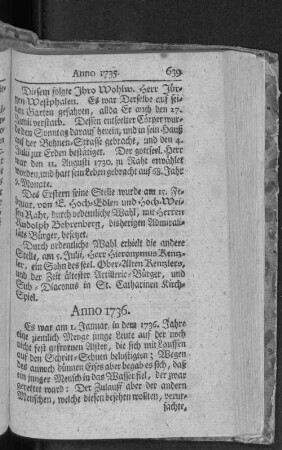 Anno 1735. 639
Diesem folgte Ihro Wohlw. Herr Jür-
gen Westphalen. Es war Derselbe auf sei-
nen Garten gefahren, allda Er auch den 27.
Junii verstarb. Dessen entseelter Cörper wur-
de den Sonntag darauf herein, und in sein Hauß
auf der Bohnen-Strasse gebracht, und den 4.
Julii zur Erden bestätiget. Der gottseel. Herr
war den 11. Augusti 1730. zu Raht erwählet
worden, und hatt sein Leben gebracht auf 68. Jahr
Monate.
Des Erstern seine Stelle wurde am 15. Fe-
bruar. von E. Hoch-Edlen und Hoch-Wei-
sen Raht, durch ordentliche Wahl, mit Herren
Rudolph Behrenberg, bisherigen Admirali-
täts Bürger, besetzet.
Durch ordentliche Wahl erhielt die andere
Stelle, am 5. Julii, Herr Hieronymus Kentz-
ler, ein Sohn des seel. Ober-Alten Kentzlers,
und der Zeit ältester Artillerie-Bürger, und
Sub-Diaconus in St. Catharinen Kirch-
Spiel.
Anno 1736.
Es war am 1. Januar. in dem 1736. Jahre
eine ziemlich Menge junge Leute auf der noch
nicht fest gefrornen Alster, die sich mit Lauffen
auf den Schritt-Schuen belustigten; Wegen
des annoch dünnen Eises aber begab es sich, daß
ein junger Mensch in das Wasser fiel, der zwar
gerettet ward: Der Zulauff aber der andern
Menschen, welche diesen besehen wollten, verur-
sachte,